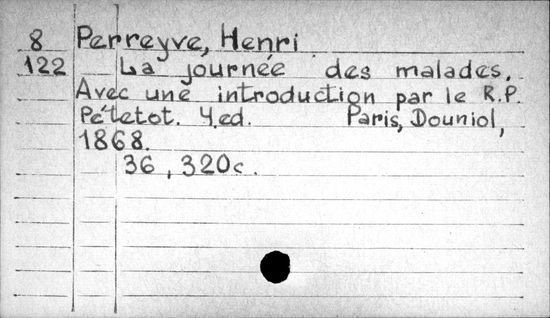 8 Perreyve, Henri
122 La journée des malades.
Avec une introduction par le R.P.
Pététot. 4.ed. Paris, Douniol,
1868.
36, 320c.